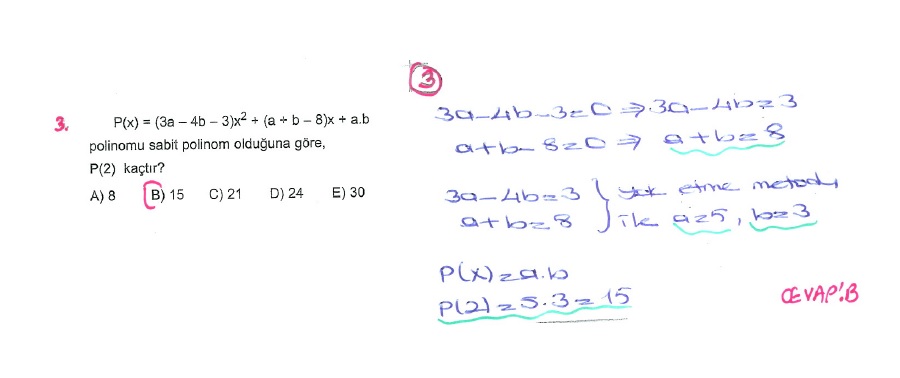 3. P(x) = (3a – 4b – 3)x² + (a + b – 8)x + a.b
polinomu sabit polinom olduğuna göre,
P(2) kaçtır?
A) 8 B) 15 C) 21 D) 24 E) 30
3
3a-4b-3=0 ⇒ 3a-4b=3
a+b-8=0 ⇒ a+b=8
3a-4b=3 } yok etme metodu
a+b=8 ile a=5, b=3
P(x)=a.b
P(2)=5.3=15
CEVAP:B